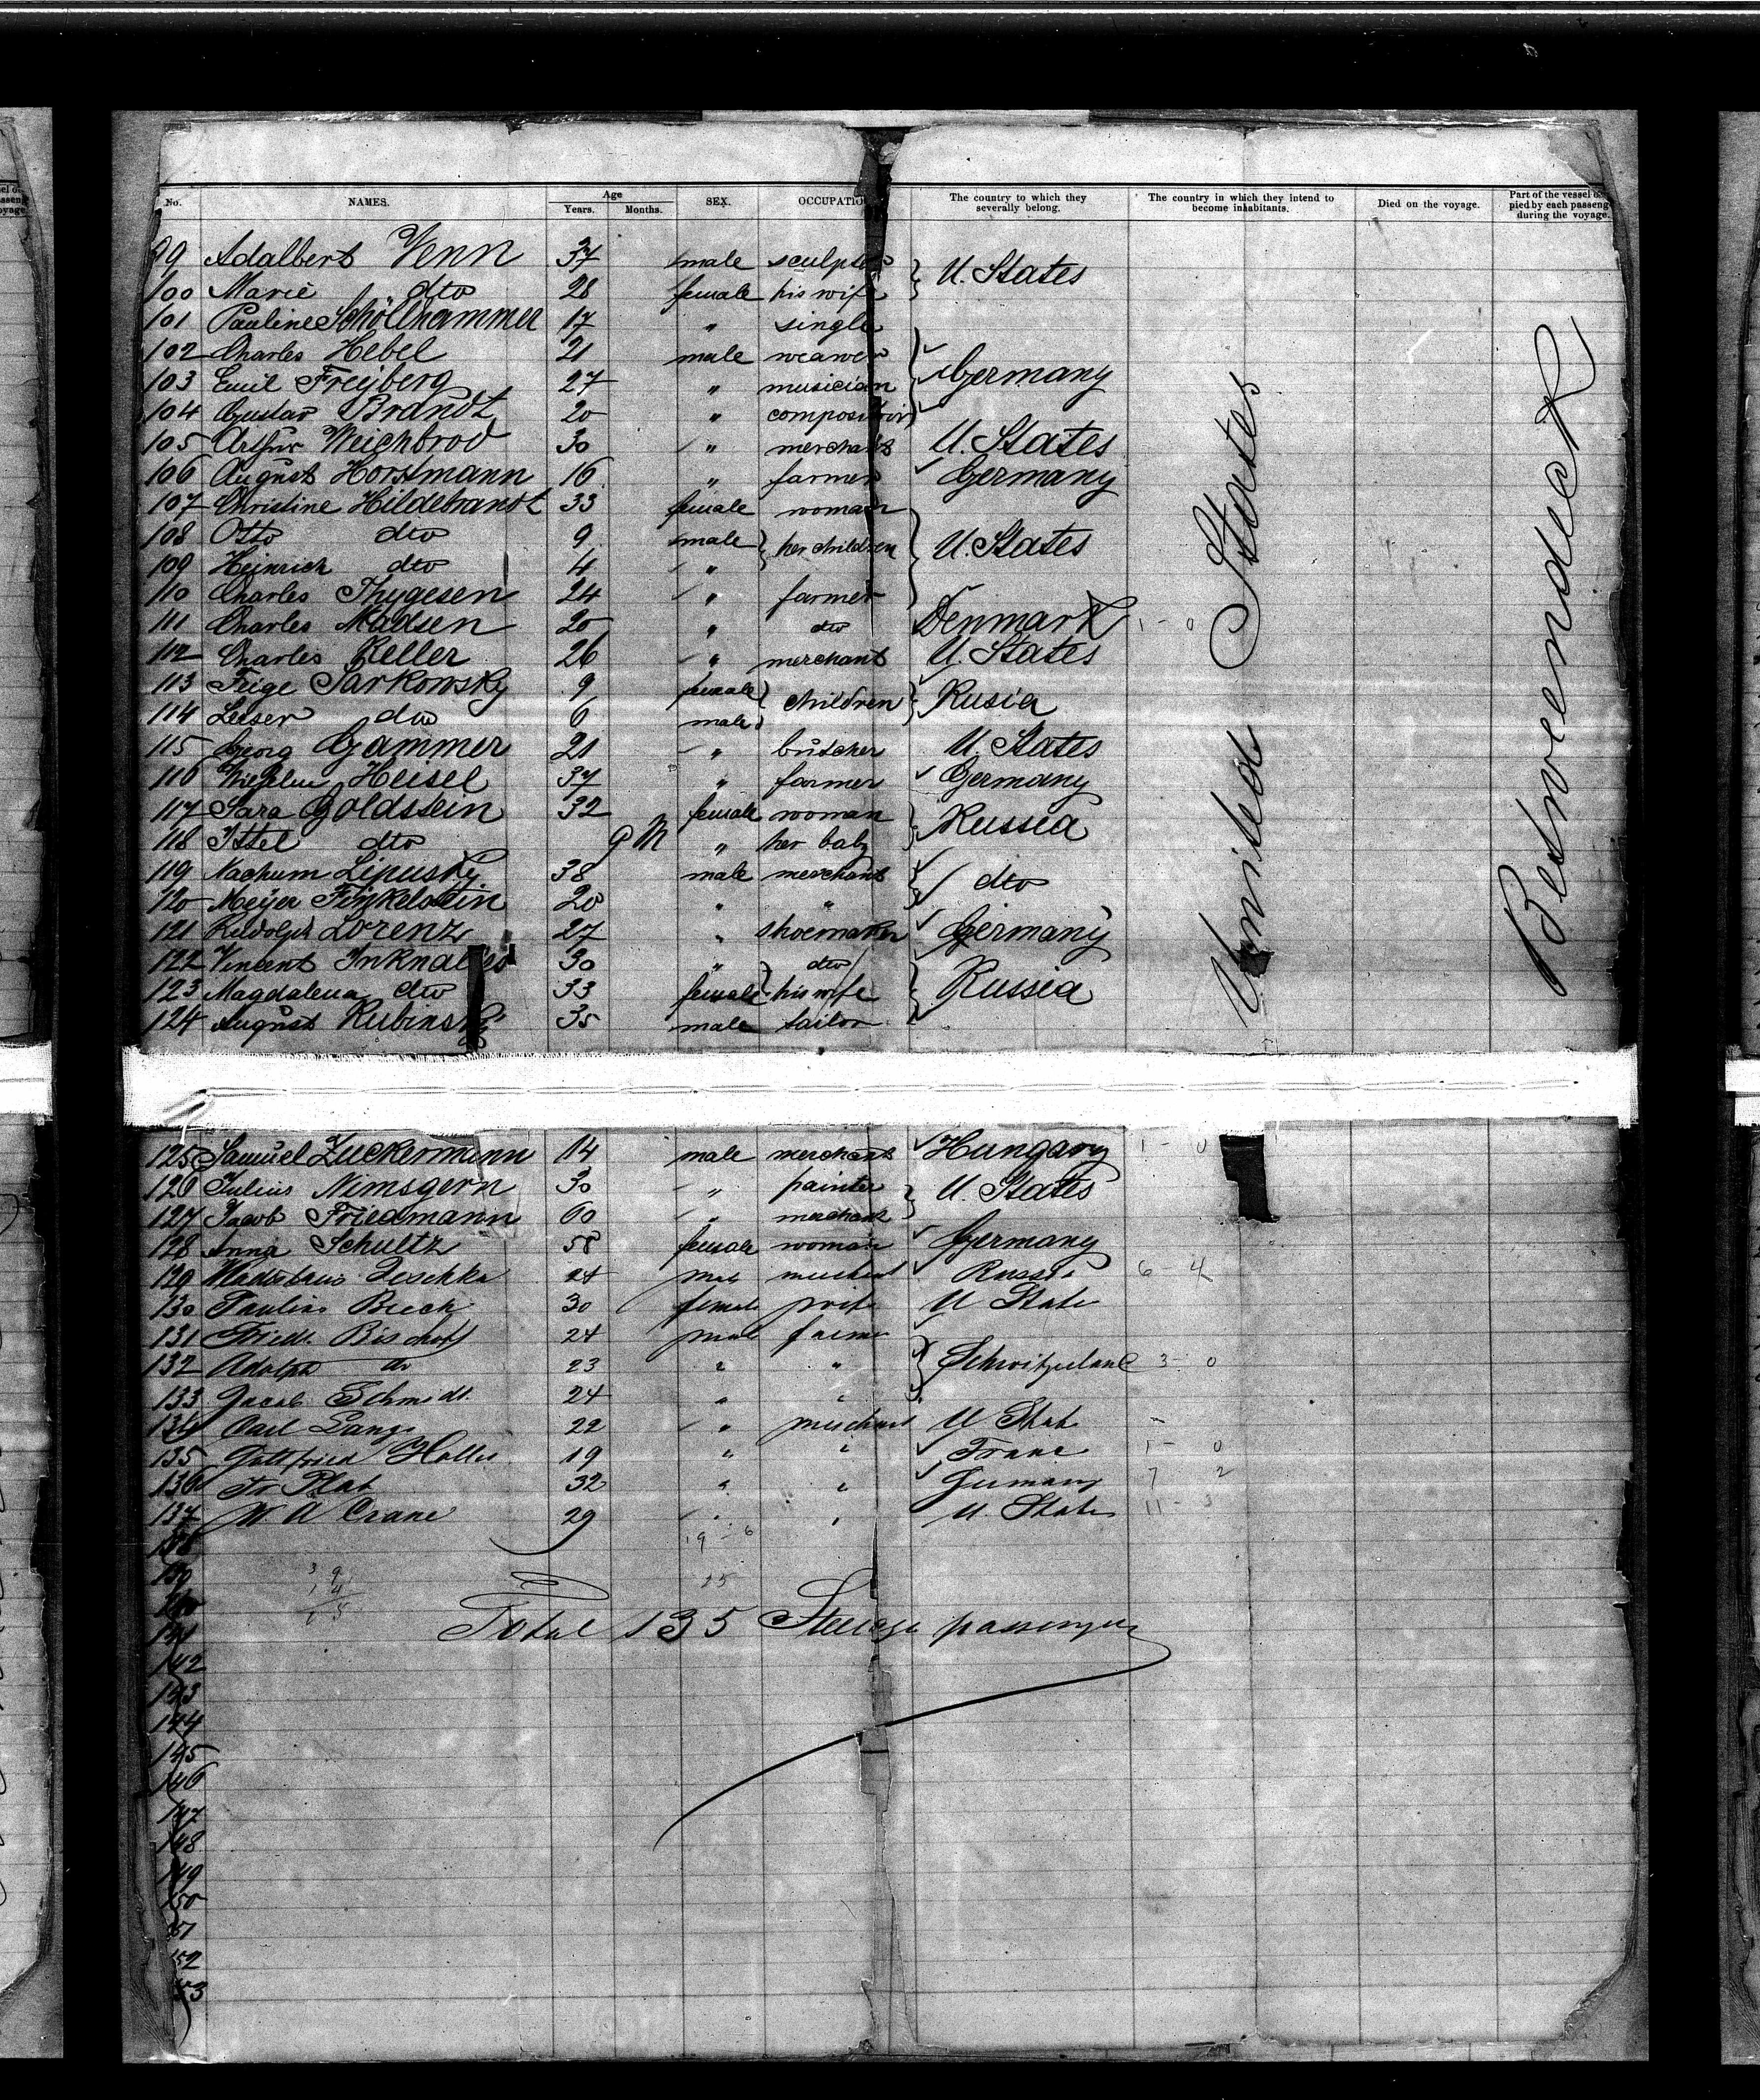 No. NAMES. Age Years. Months. SEX. The country to which they severally belong. The country in which they intend to become inhabitants. Died on the voyage.
99 Adalbert Venn 37 male U. States
100 Marie dto 28 female his wife
101 Pauline Schöllhammer 17 " single
102 Charles Hebel 21 male weawer
103 Emil Freyberg 27 " musician Germany
104 Gustav Brandt 20 "
105 Arthur Weichbrod 30 " merchant U. States
106 August Horstmann 16 " farmer Germany
107 Christine Hildebrandt 33 female woman
108 Otto dto 9 male her children U. States
109 Heinrich dto 4 "
110 Charles Thygesen 24 " farmer
111 Charles Madsen 20 " dto Denmark 1 - 0
112 Charles Keller 26 " merchant U. States
113 Feige Sarkowsky 9 female children Rusia
114 Leiser dto 6 male
115 Georg Gammer 21 " butcher U. States
116 Wilhelm Heisel 37 " farmer Germany
117 Sara Goldstein 32 female woman Russia
118 Ittel dto 9 M " her baby
119 Nachum Lipusky 38 male merchant dto
120 Meyer Finkelstein 20 " "
121 Rudolph Lorenz 27 " shoemaker Germany
122 Vincent 30 " dto
123 Magdalena dto 33 female his wife Russia
124 August Rubinsky 35 male tailor
United States
Betweendeck
125 Samuel Zuckermann 14 male merchant Hungary 1 - 0
126 Julius Nimsgern 30 " painter U. States
127 Jacob Friedmann 60 " merchant
128 Anna Schultz 58 female woman Germany
129 24 Russia 6 - 4
130 30 female U State
131 Friedr Bischoff 24 male
132 Adolph do 23 " " 3 - 0
133 Jacob Schmidt 24 " "
134 Carl Lange 22 "
135 Gottfried 19 " " 1 - 0
136 32 " " 7 2
137 W A Crane 29 " " 11 - 3
138 19 - 6
139 25
140
141 Total 135 Steerage passengers
142
143
144
145
146
147
148
149
150
51
52
53